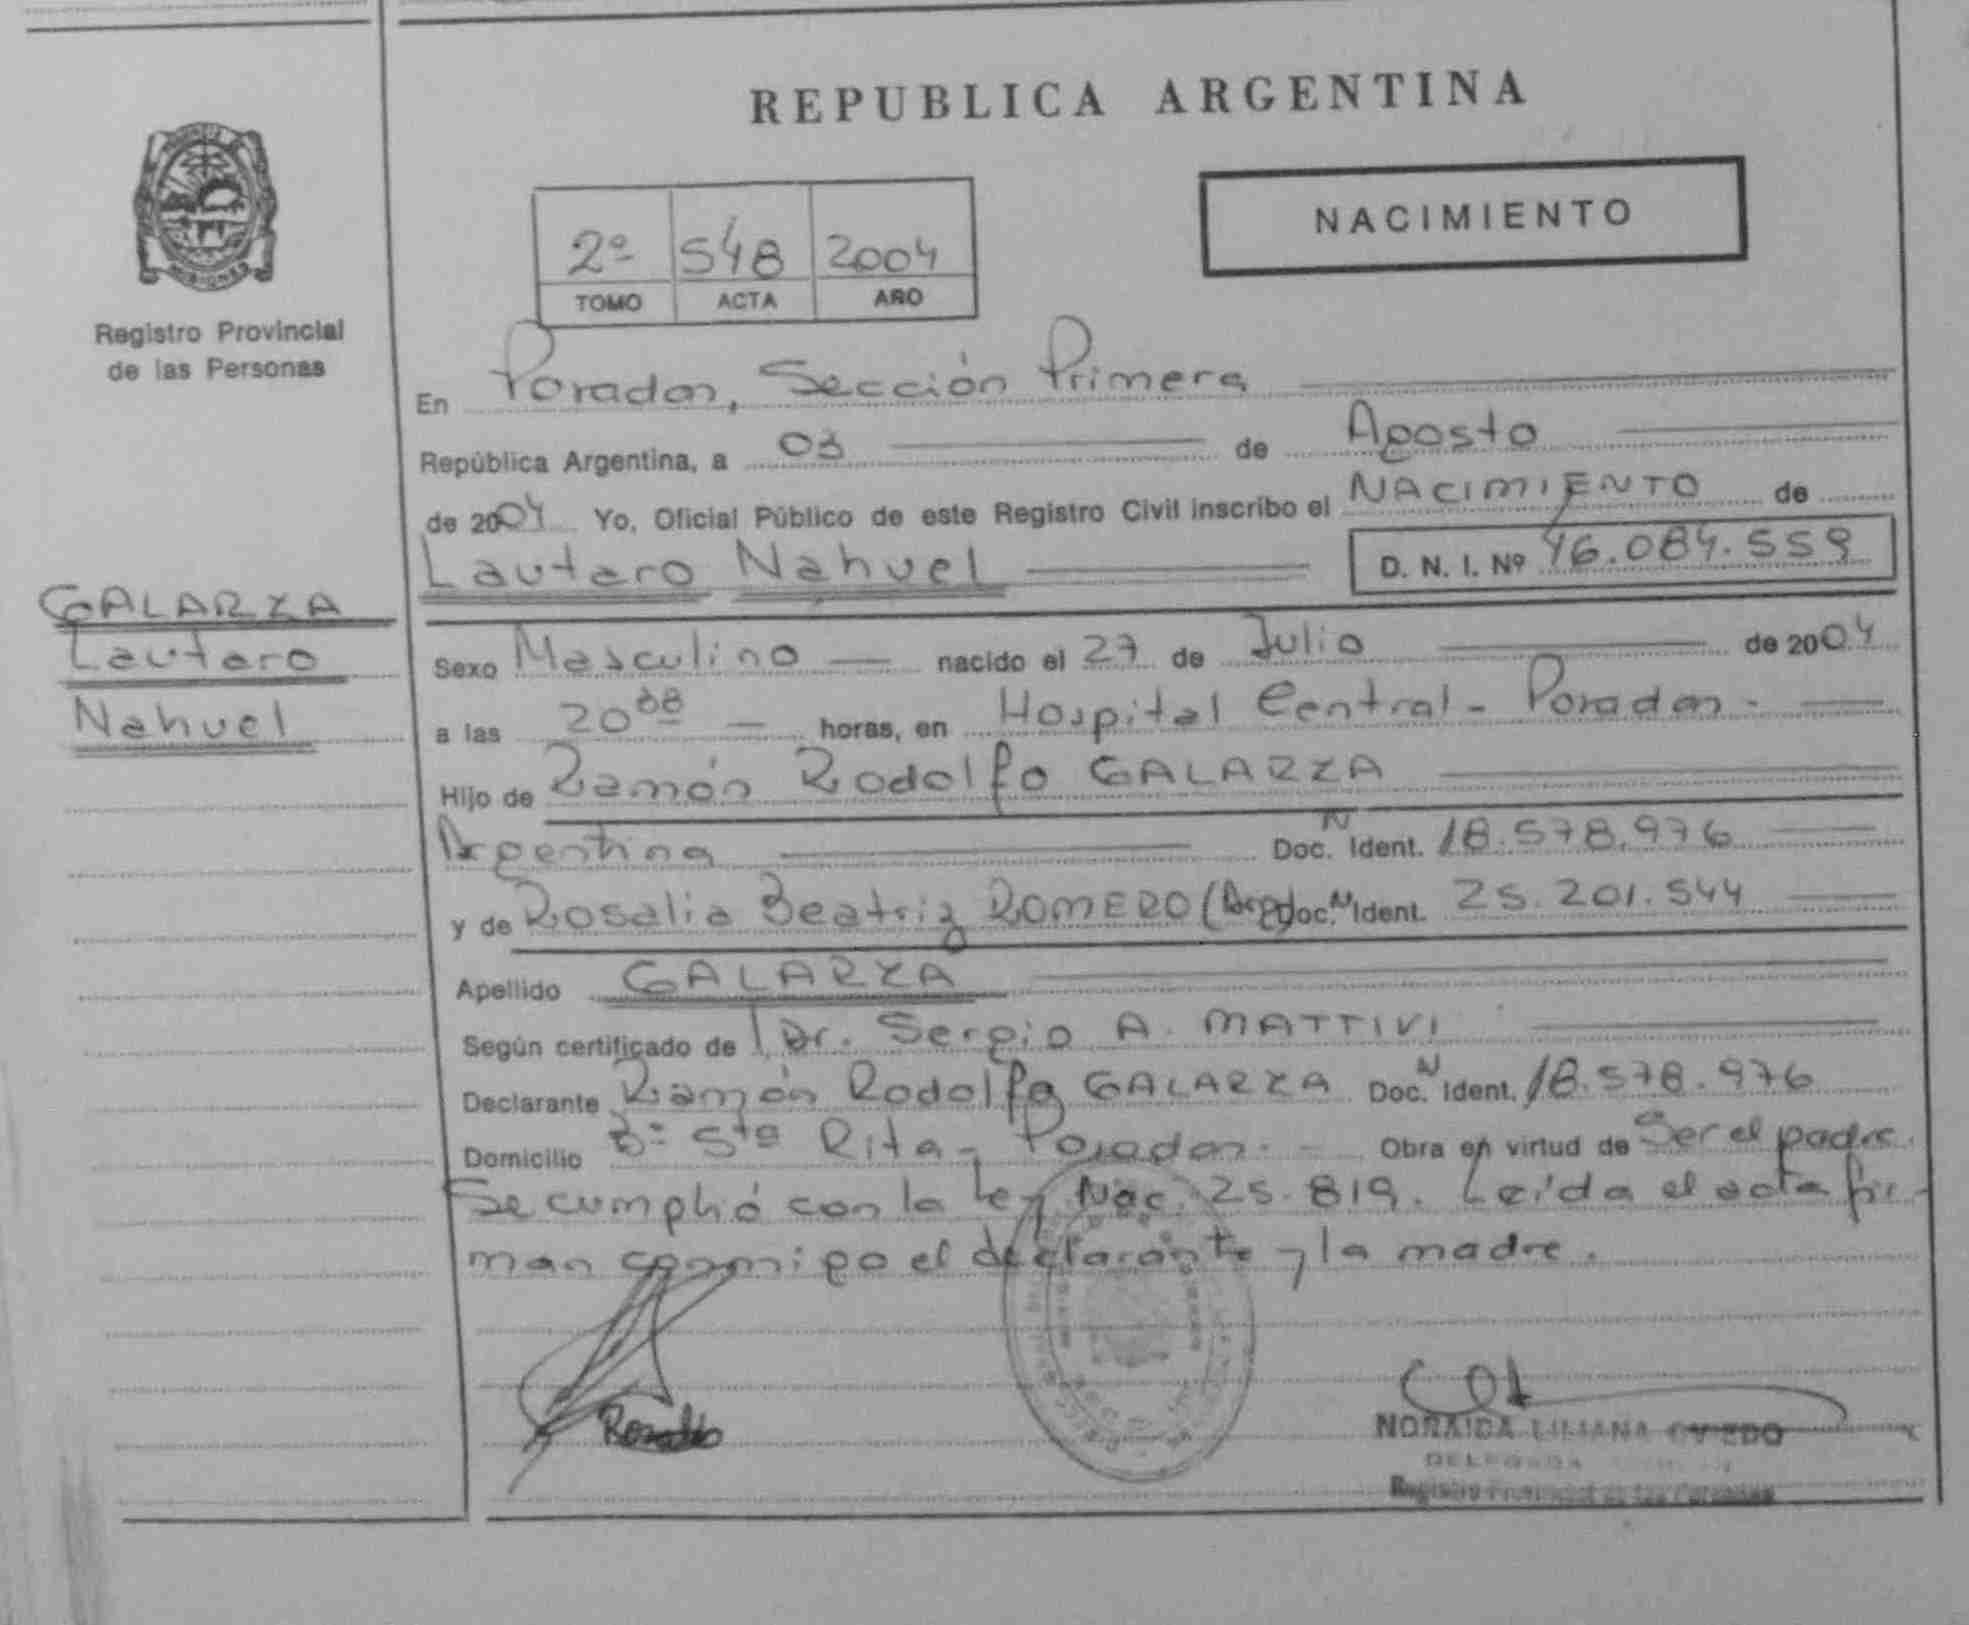 REPUBLICA ARGENTINA
NACIMIENTO
2º 548 2004
TOMO ACTA AÑO
MISIONES
Registro Provincial
de las Personas
En Posadas, Sección Primera
República Argentina, a 03 de Agosto
de 2004 Yo, Oficial Público de este Registro Civil inscribo el NACIMIENTO de
Lautaro Nahuel D. N. I. Nº 46.084.559
GALARZA
Lautaro
Nahuel
Sexo Masculino nacido el 27 de Julio de 2004
a las 20 horas, en Hospital Central - Posadas -
Hijo de Ramón Rodolfo GALARZA
Argentina Doc. N Ident. 18.578.976
y de Rosalia Beatriz ROMERO (Arg) Doc. N Ident. 25.201.544
Apellido GALARZA
Según certificado de Dr. Sergio A. MATTIVI
Declarante Ramón Rodolfo GALARZA Doc. N Ident. 18.578.976
Domicilio Bº Sta Rita - Posadas - Obra en virtud de Ser el padre.
Se cumplió con la Ley Nac. 25.819. Leída el acta fir-
man conmigo el declarante y la madre.
NORAIDA LILIANA OVIEDO
DELEGADA
Registro Provincial de las Personas